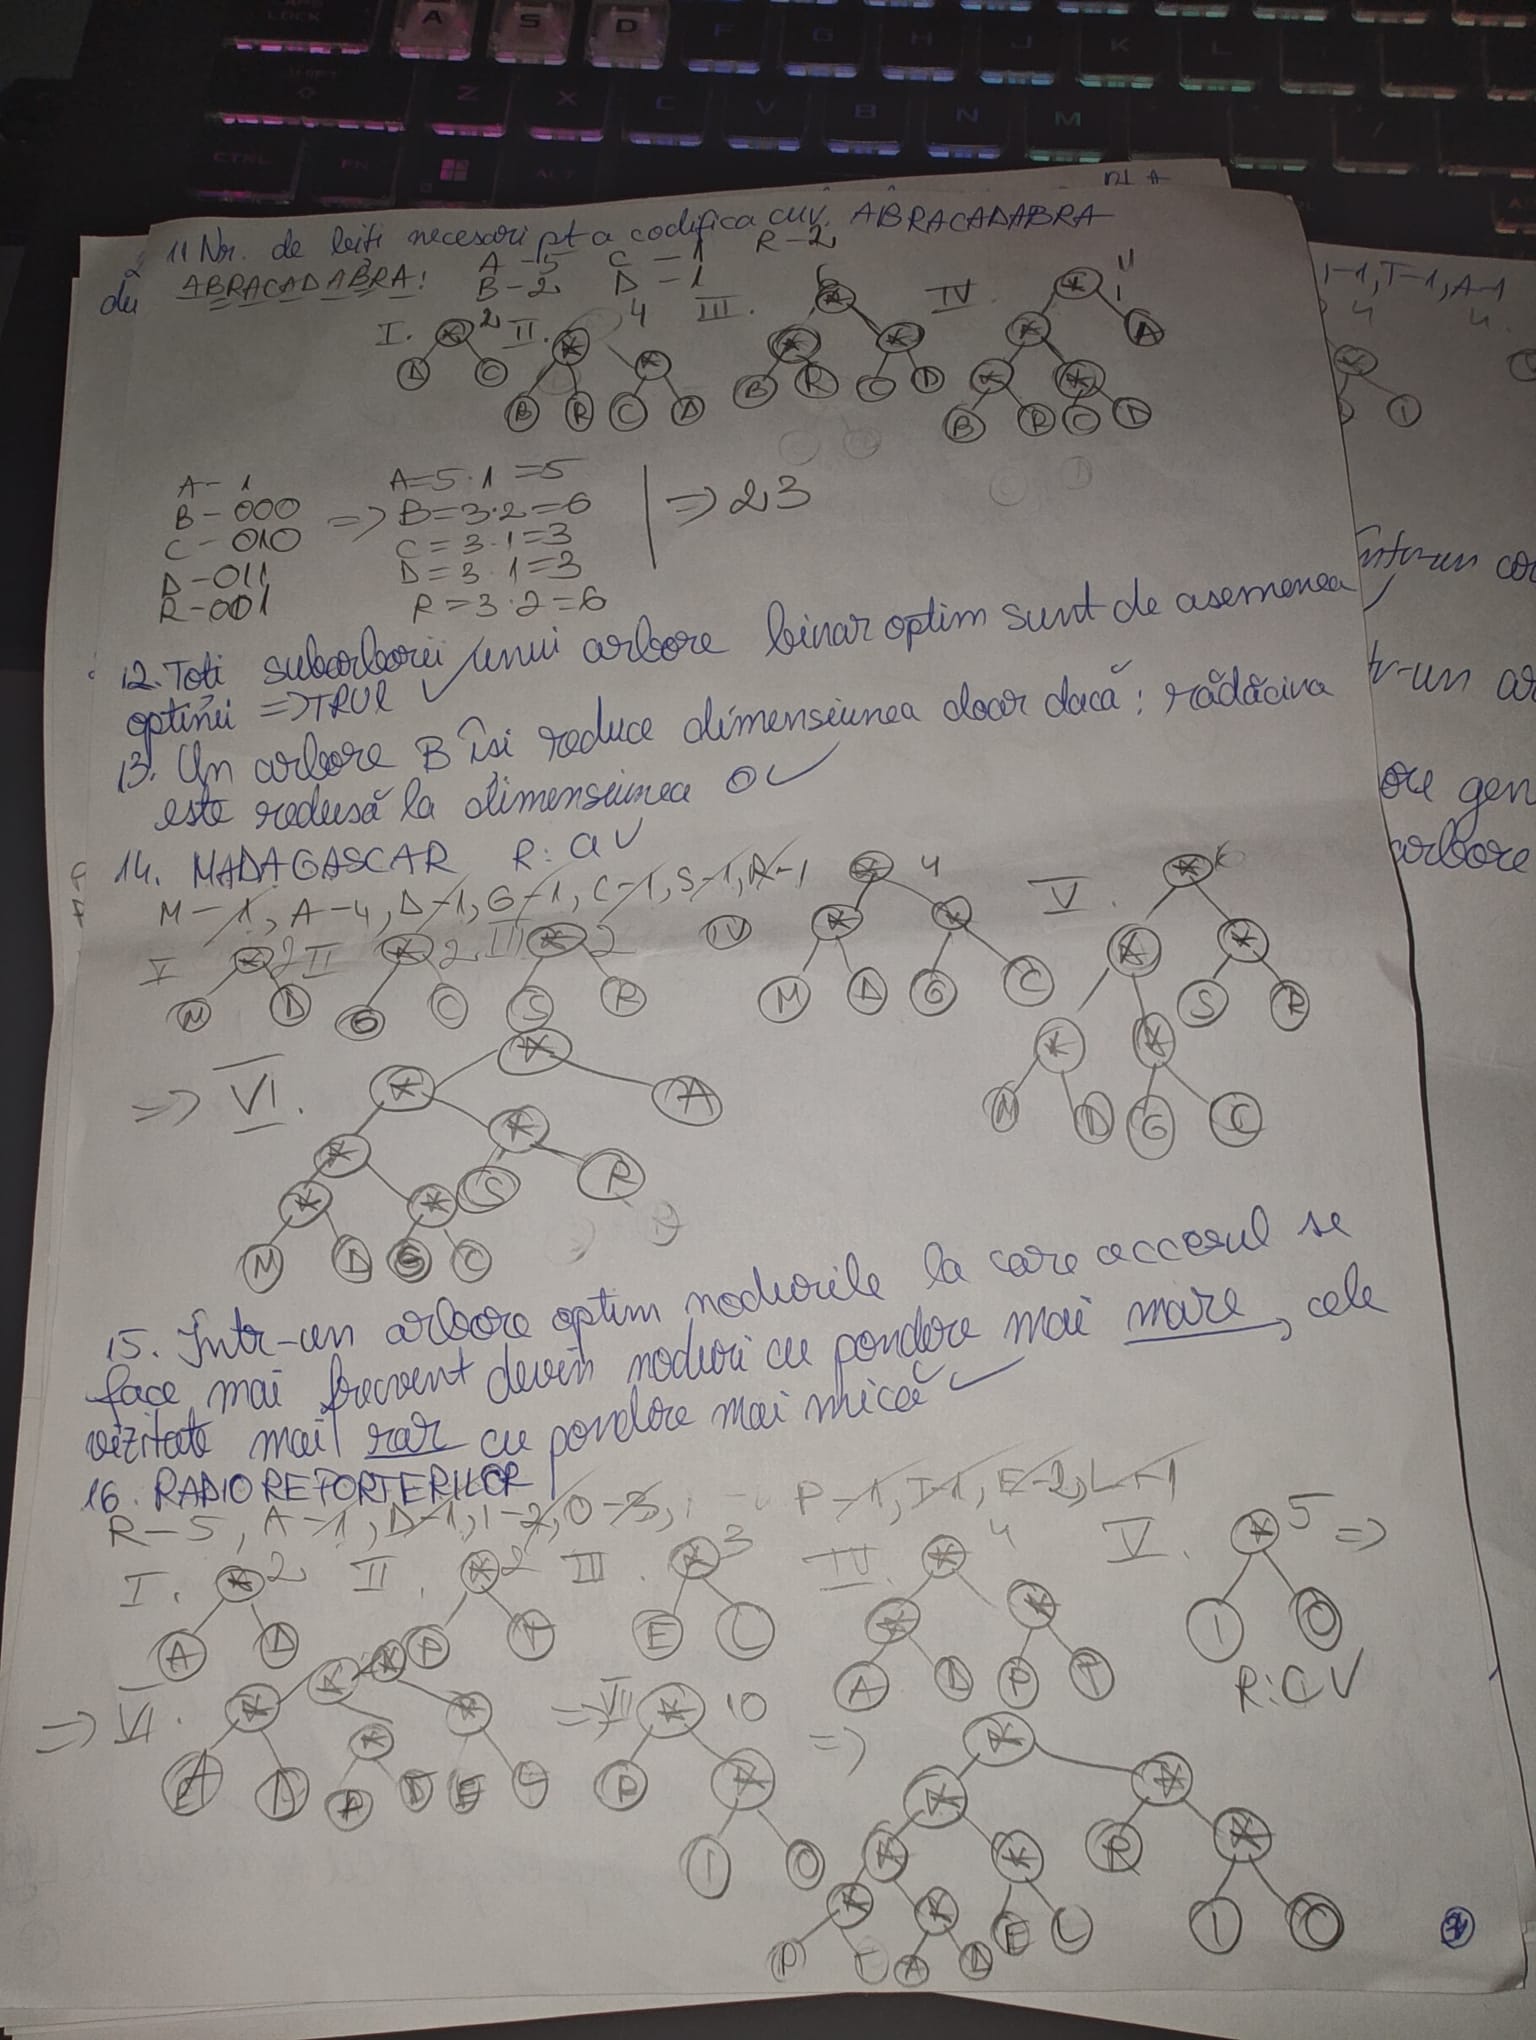 CAPS LOCK A S D F G H J K L
SHIFT Z X C V B N M
CTRL FN ALT
11 Nr. de biți necesari pt a codifica cuv. ABRACADABRA
du ABRACADABRA: A-5 C-1 R-2
B-2 D-1
I. * 2 II. * 4 III. 6 * IV * 11
D C * * B R C D * * * A
B R C D B R C D
A-1 A=5·1=5
B-000 => B=3·2=6 => 23
C-010 C=3·1=3
D-011 D=3·1=3
R-001 R=3·2=6
12. Toti subarborii unui arbore binar optim sunt de asemenea
optimi =>TRUE
13. Un arbore B își reduce dimensiunea doar dacă: rădăcina
este redusă la dimensiunea 0
14. MADAGASCAR R: a
M-1, A-4, D-1, G-1, C-1, S-1, R-1
I * 2 II * 2 III * 2 IV * 4 V. * 6
M D G C S R M D G C S R
=> VI. * * A M D G C
* * S R
M D G C
15. Într-un arbore optim nodurile la care accesul se
face mai frecvent devin noduri cu pondere mai mare, cele
vizitate mai rar cu pondere mai mică
16. RADIOREPORTERILOR
R-5, A-1, D-1, I-2, O-3, P-1, T-1, E-2, L-1
I. * 2 II. * 2 III. * 3 IV. * 4 V. * 5 =>
A D P T E L A D P T I O
R: C
=> VI. * * * => VII * 10 =>
A D P E L R * R
I O P A D E L I O
1-1, T-1, A-1
4 4
într-un
arbore